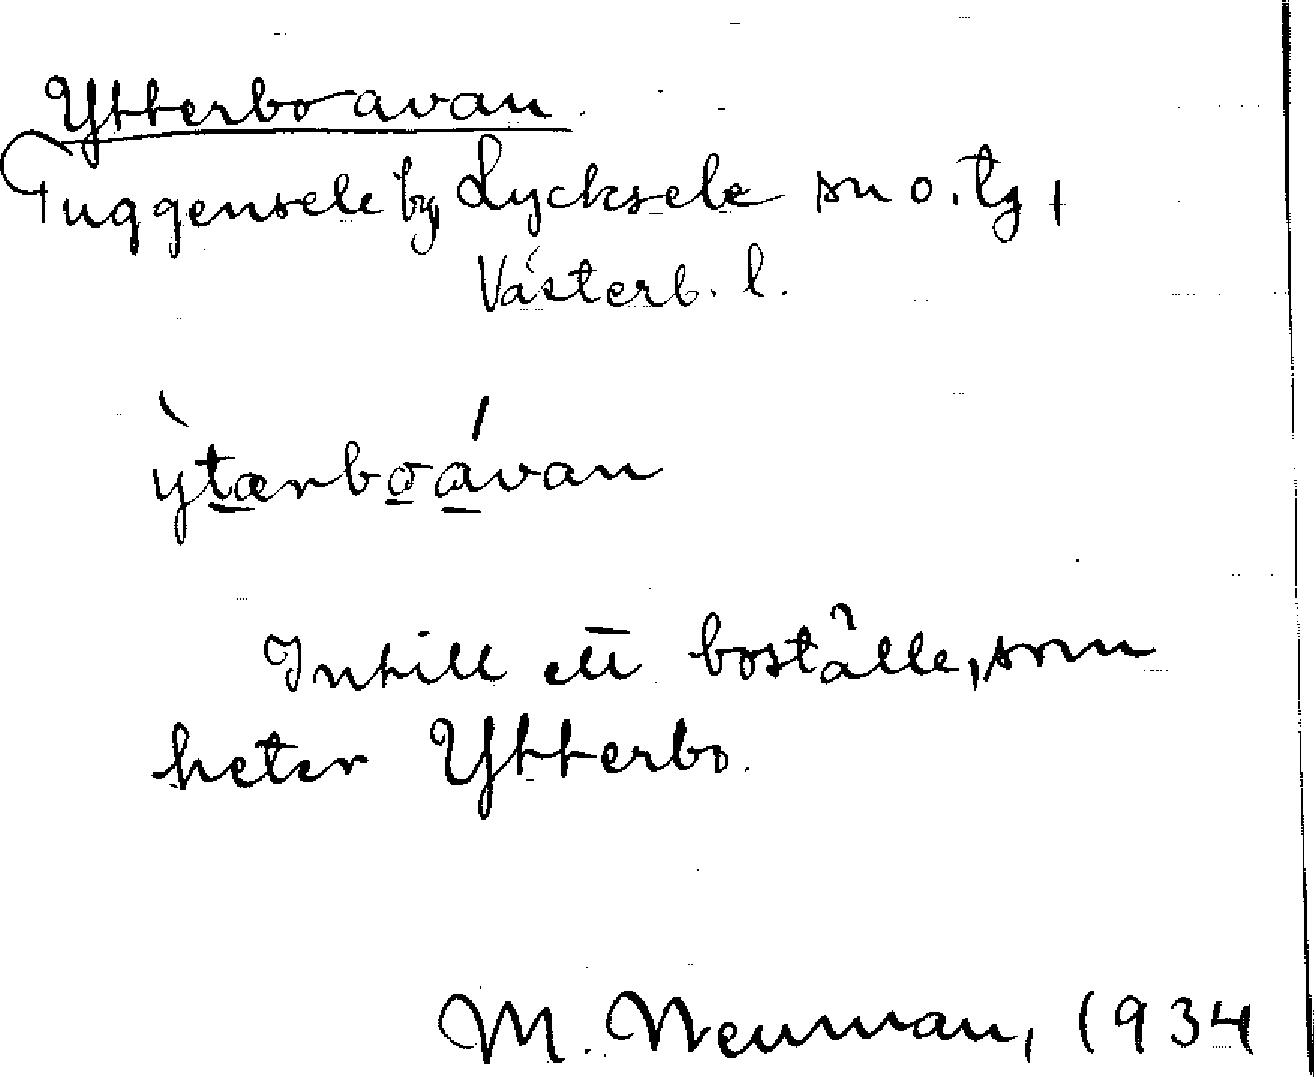 Ytterboavan
Tuggensele by Lycksele sn o. tg,
Västerb. l.
ỳtærboávan
Intill ett boställe, som
heter Ytterbo.
M. Neuman, 1934